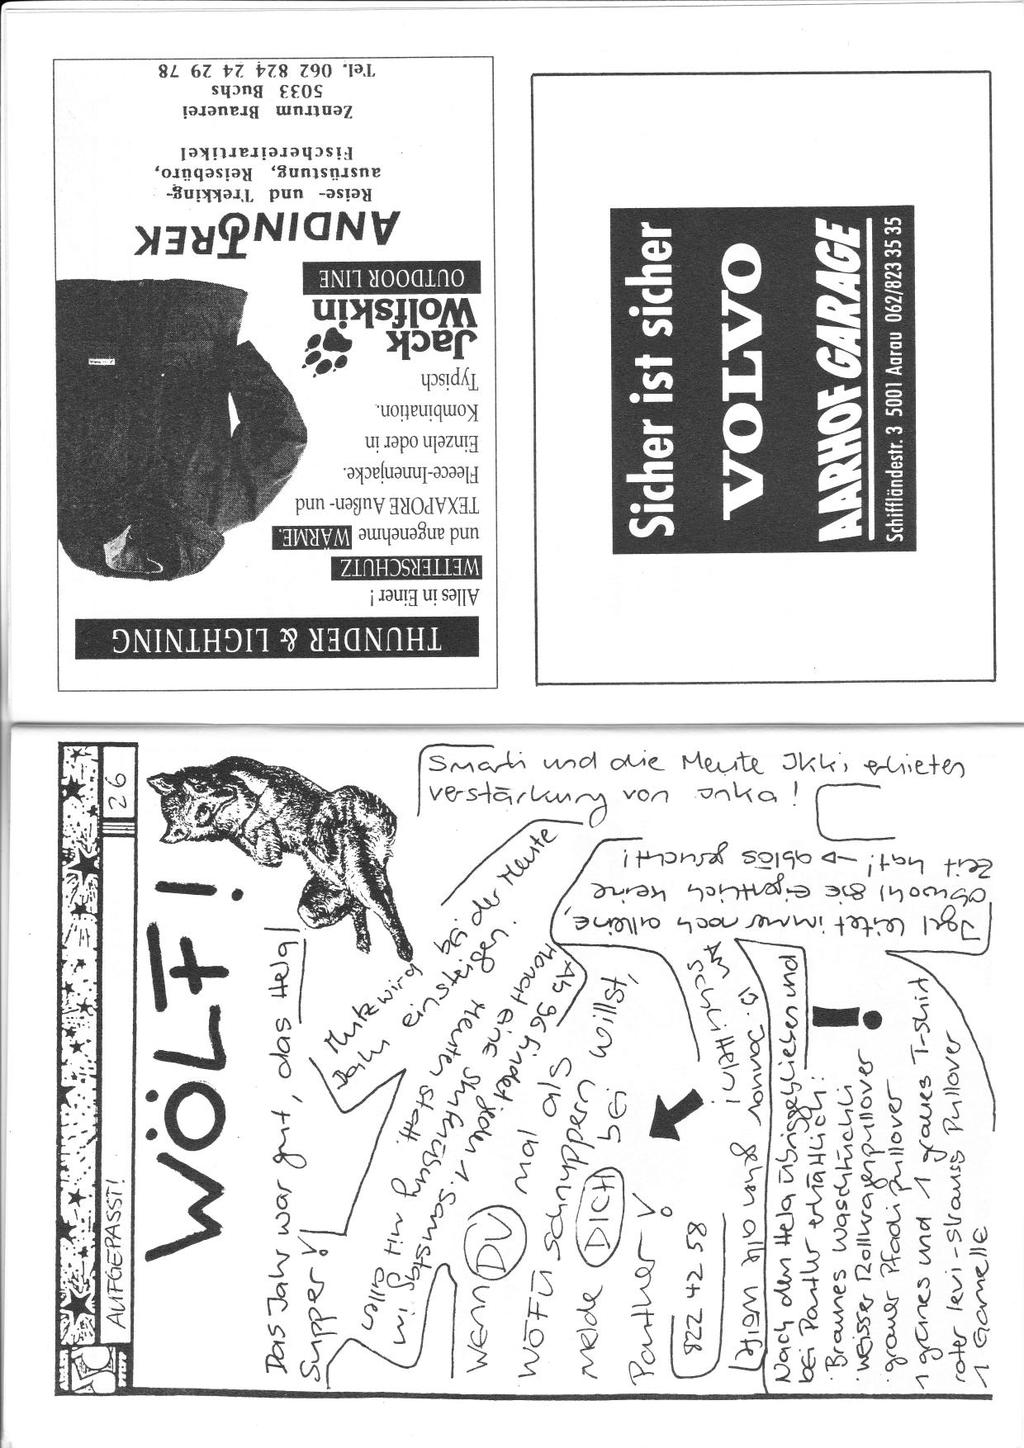 THUNDER & LIGHTNING
Alles in Einer !
WETTERSCHUTZ
und angenehme WÄRME.
TEXAPORE-Außen- und
Fleece-Innenjacke.
Einzeln oder in
Kombination.
Typisch
Jack
Wolfskin
OUTDOOR LINE
ANDINTREK
Reise- und Trekking-
ausrüstung, Reisebüro,
Fischereiartikel
Zentrum Brauerei
5033 Buchs
Tel. 062 824 24 29 78
Sicher ist sicher
VOLVO
AARHOF GARAGE
Schiffländestr. 3 5001 Aarau 062/823 35 35
AUFGEPASST!
26
WÖLFLI!
Das Jahr war gut, das Hela
Supper!
Mutz wird
einsteigen
bei der Meute
Ab 96 findet jeden 1. Samstag im
Monat eine Stufenübung mit allen
Meuten statt
WENN DU mal als
WÖFÜ schnuppern willst,
melde DICH bei
Panther!
822 42 58
Smarti und die Meute Ikki erhielten
verstärkung von Inka!
Igel leitet immer noch alleine,
obwohl sie eigentlich keine
Zeit hat! → ablös gesucht!
Nach dem Hela übriggeblieben und
bei Panther erhältlich:
Braunes Waschtüchli
weisser Rollkragenpullover
grauer Pfadipullover
1 grünes und 1 graues T-shirt
roter levi-strauss Pullover
1 Gamelle
!